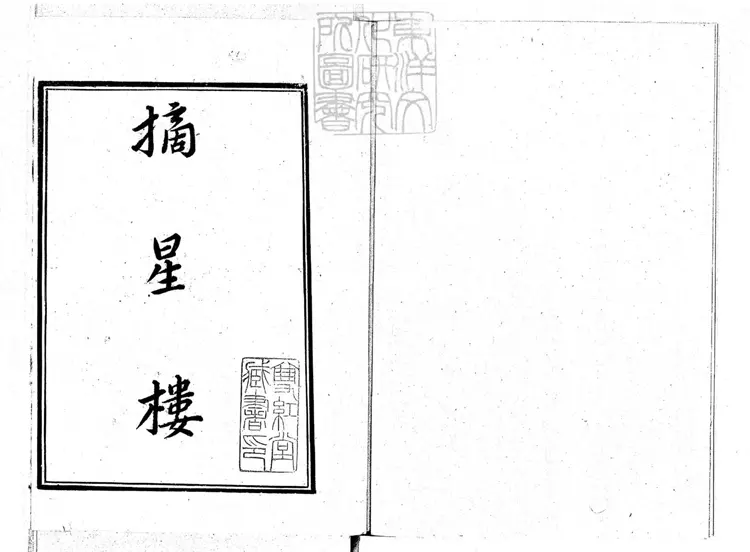 東洋文
化研究
所圖書
摘星樓
雙紅堂
藏書印